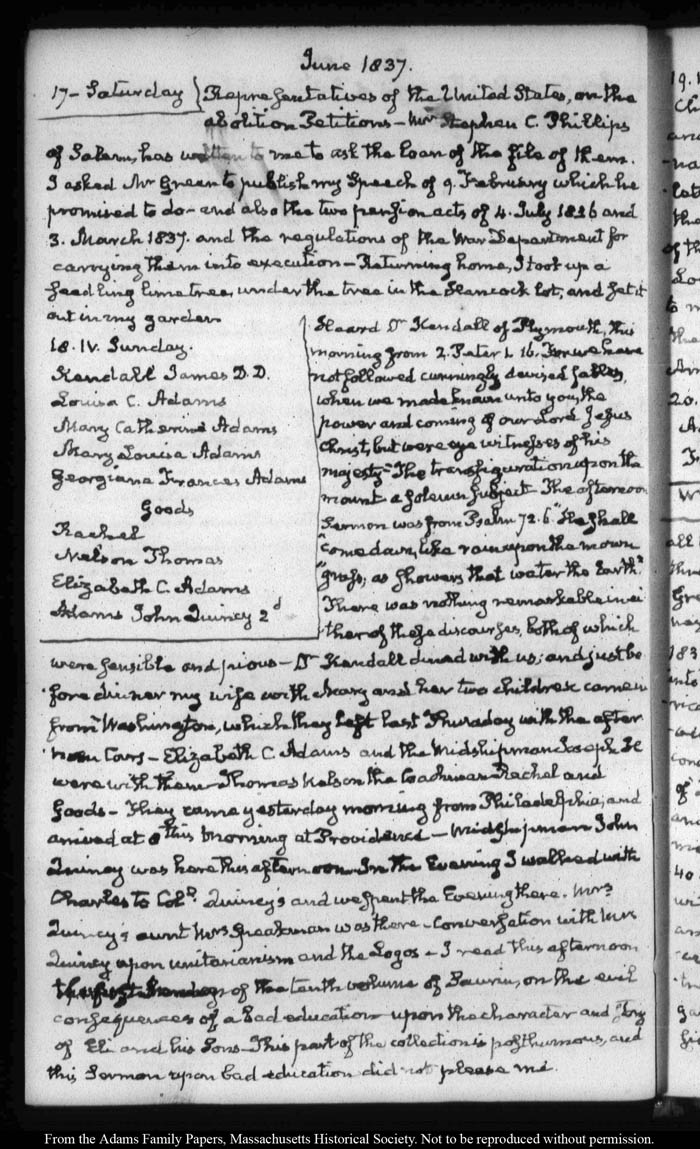 June 1837.
17 - Saturday } Representatives of the United States, on the
abolition Petitions - Mr Stephen C. Phillips
of Salem, has written to me to ask the loan of the file of them.
I asked Mr Green to publish my Speech of 9. February which he
promised to do - and also the two pension acts of 4. July 1836 and
3. March 1837. and the regulations of the War Department for
carrying them into execution - Returning home, I took up a
seedling lime tree, under the tree in the Hancock lot, and set it
out in my garden
18. IV. Sunday.
Kendall James D.D.
Louisa C. Adams
Mary Catherine Adams
Mary Louisa Adams
Georgiana Frances Adams
Goods
Rachel
Nelson Thomas
Elizabeth C. Adams
Adams John Quincy 2d
Heard Dr Kendall of Plymouth, this
morning from 2. Peter 1. 16. For we have
not followed cunningly devised fables,
when we made known unto you, the
power and coming of our Lord Jesus
Christ, but were eye witnesses of his
majesty" The transfiguration upon the
mount a solemn subject The afternoon
Sermon was from Psalm 72. 6 "He shall
"come down, like rain upon the mown
"grass; as showers that water the Earth."
There was nothing remarkable in ei
ther of these discourses, both of which
were sensible and pious - Dr Kendall dined with us; and just be
fore dinner my wife with Mary and her two children came in
from Washington, which they left last Thursday with the after
noon Cars - Elizabeth C. Adams and the Midshipman Joseph H.
were with them - Thomas Nelson the Coachman Rachel and
Goods - They came yesterday morning from Philadelphia, and
arrived at this morning at Providence - Midshipman John
Quincy was here this afternoon - In the Evening I walked with
Charles to Coll. Quincy's and we spent the Evening there. Mrs
Quincy's aunt Mrs Greakman was there - Conversation with Mrs
Quincy upon unitarianism and the Logos - I read this afternoon
the first Sermon of the tenth volume of Saurin, on the evil
consequences of a bad education - upon the character and story
of Eli and his Sons - This part of the collection is posthumous, and
this Sermon upon bad education did not please me.
From the Adams Family Papers, Massachusetts Historical Society. Not to be reproduced without permission.